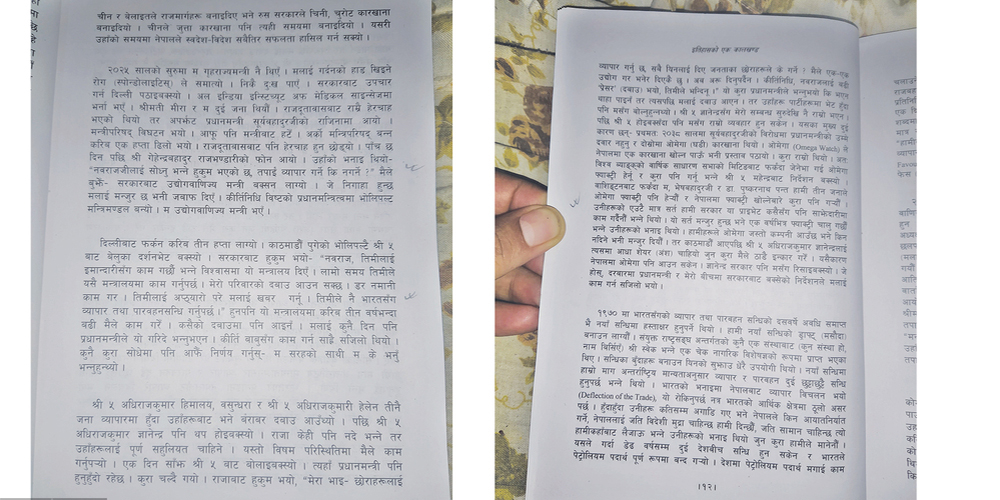 चीन र बेलाइतले राजमार्गहरू बनाइदिए भने रुस सरकारले चिनी, चुरोट कारखाना
बनाइदियो । चीनले जुत्ता कारखाना पनि त्यही समयमा बनाइदियो । यसरी
उहाँको समयमा नेपालले स्वदेश-विदेश सबैतिर सफलता हासिल गर्न सक्यो ।
२०२५ सालको सुरुमा म गृहराज्यमन्त्री नै थिएँ । मलाई गर्दनको हाड खिइने
रोग (स्पोन्डोलाइटिस्) ले समात्यो । निकै दुःख पाएँ । सरकारबाट उपचार
गर्न दिल्ली पठाइबक्स्यो । अल इन्डिया इन्स्टिच्युट अफ मेडिकल साइन्सेजमा
भर्ना भएँ । श्रीमती मीरा र म दुई जना थियौं । राजदूतावासबाट राम्रै हेरचाह
भएको थियो तर अपर्झट प्रधानमन्त्री सूर्यबहादुरजीको राजिनामा आयो ।
मन्त्रीपरिषद् विघटन भयो । आफू पनि मन्त्रीबाट हटेँ । अर्को मन्त्रिपरिषद् बन्न
करिब एक हप्ता ढिलो भयो । राजदूतावासबाट पनि हेरचाह हुन छोड्यो । पाँच छ
दिन पछि श्री गेहेन्द्रबहादुर राजभण्डारीको फोन आयो । उहाँको भनाइ थियो-
"नवराजजीलाई सोध्नु भन्ने हुकुम भएको छ, तपाईं व्यापार गर्ने कि नगर्ने ?" मैले
बुझेँ- सरकारबाट उद्योगवाणिज्य मन्त्री बक्सन लाग्यो । जे निगाहा हुन्छ
मलाई मन्जुर छ भनी जवाफ दिएँ । कीर्तिनिधि विष्टको प्रधानमन्त्रित्वमा भोलिपल्ट
मन्त्रिमण्डल बन्यो । म उद्योगवाणिज्य मन्त्री भएँ ।
दिल्लीबाट फर्कन करिब तीन हप्ता लाग्यो । काठमाडौं पुगेको भोलिपल्टै श्री ५
बाट बेलुका दर्शनभेट बक्स्यो । सरकारबाट हुकुम भयो- "नवराज, तिमीलाई
इमान्दारीसँग काम गर्छौ भन्ने विश्वासमा यो मन्त्रालय दिएँ । लामो समय तिमीले
यसै मन्त्रालयमा काम गर्नुपर्छ । मेरो परिवारको दबाउ आउन सक्छ । डर नमानी
काम गर । तिमीलाई अप्ठ्यारो परे मलाई खबर गर्नू । तिमीले नै भारतसँग
व्यापार तथा पारवहनसन्धि गर्नुपर्छ ।" हुनपनि यो मन्त्रालयमा करिब तीन वर्षभन्दा
बढी मैले काम गरेँ । कसैको दबाउमा पनि आइनँ । मलाई कुनै दिन पनि
प्रधानमन्त्रीले यो गरिदे भन्नुभएन । कीर्ति बाबुसँग काम गर्न साह्रै सजिलो थियो ।
कुनै कुरा सोधेमा पनि आफै निर्णय गर्नुस्- म सरहको साथी म के भनूँ
भन्नुहुन्थ्यो ।
श्री ५ अधिराजकुमार हिमालय, वसुन्धरा र श्री ५ अधिराजकुमारी हेलेन तीनै
जना व्यापारमा हुँदा उहाँहरूबाट भने बराबर दबाउ आउँथ्यो । पछि श्री ५
अधिराजकुमार ज्ञानेन्द्र पनि थप होइबक्स्यो । राजा केही पनि नदे भन्ने तर
उहाँहरूलाई पूर्ण सहुलियत चाहिने । यस्तो विषम परिस्थितिमा मैले काम
गर्नुपर्‍यो । एक दिन साँझ श्री ५ बाट बोलाइबक्स्यो । त्यहाँ प्रधानमन्त्री पनि
हुनुहुँदो रहेछ । कुरा चल्दै गयो । राजाबाट हुकुम भयो, "मेरा भाइ- छोराहरूलाई
इतिहासको एक कालखण्ड
व्यापार गर्नु छ, सबै यिनलाई दिए जनताका छोराहरूले के गर्ने ? मैले एक-एक
उद्योग गर भनेर दिएकै छु । अब अरू दिनुपर्दैन । कीर्तिनिधि, नवराजलाई बढी
'प्रेसर' (दबाउ) भयो, तिमीले भन्दिनू ।" यो कुरा प्रधानमन्त्रीले भन्नुभयो कि भएन
थाहा पाइनँ तर त्यसपछि मलाई दबाउ आएन । तर उहाँहरू पार्टीहरूमा भेट हुँदा
पनि मसँग बोल्नुहुन्नथ्यो । श्री ५ ज्ञानेन्द्रसँग मेरो सम्बन्ध सुरुदेखि नै राम्रो भएन ।
पछि श्री ५ होइबक्सँदा पनि मसँग राम्रो व्यवहार हुन सकेन । यसका मुख्य दुई
कारण छन्- प्रथमतः २०३८ सालमा सूर्यबहादुरजीको विरोधमा प्रधानमन्त्रीको उम्मे
दवार नहुनु र दोस्रोमा ओमेगा (घडी) कारखाना थियो । ओमेगा (Omega Watch) ले
नेपालमा एक कारखाना खोल्न पाऊँ भनी प्रस्ताव पठायो । कुरा राम्रो थियो । अतः
विश्व ब्याङ्कको वार्षिक साधारण सभाको मिटिङबाट फर्कँदा जेनेभा गई ओमेगा
फ्याक्ट्री हेर्नू र कुरा पनि गर्नू भन्ने श्री ५ महेन्द्रबाट निर्देशन बक्स्यो ।
वाशिङ्टनबाट फर्कँदा म, भेषबहादुरजी र डा. पुष्करनाथ पन्त हामी तीन जनाले
ओमेगा फ्याक्ट्री पनि हेर्‍यौं र नेपालमा फ्याक्ट्री खोल्नेबारे कुरा पनि गर्‍यौं ।
उनीहरूको एउटै मात्र सर्त हामी सरकार या प्राइभेट कसैसँग पनि साझेदारीमा
काम गर्दैनौं भन्ने थियो । यो सर्त मन्जुर हुन्छ भने एक वर्षभित्र फ्याक्ट्री चालु गर्छौं
भन्ने उनीहरूको भनाइ थियो । हामीहरूले ओमेगा जस्तो कम्पनी आउँछ भने किन
नदिने भनी मन्जुर दियौं । तर काठमाडौं आएपछि श्री ५ अधिराजकुमार ज्ञानेन्द्रलाई
त्यसमा आधा शेयर (अंश) चाहियो जुन कुरा मैले ठाडै इन्कार गरेँ । यसैकारण
नेपालमा ओमेगा पनि आउन सकेन । ज्ञानेन्द्र सरकार पनि मसँग रिसाइबक्स्यो । जे
होस्, दरबारमा प्रधानमन्त्री र मेरो बीचमा सरकारबाट बक्सेको निर्देशनले मलाई
काम गर्न सजिलो भयो ।
१९७० मा भारतसँगको व्यापार तथा पारवहन सन्धिको दसवर्षे अवधि समाप्त
भै नयाँ सन्धिमा हस्ताक्षर हुनुपर्ने थियो । हामी नयाँ सन्धिको ड्राफ्ट् (मसौदा)
बनाउन लाग्यौं । संयुक्त राष्ट्रसङ्घ अन्तर्गतको कुनै एक संस्थाबाट (कुन संस्था हो,
नाम बिर्सिएँ) श्री स्वेक भन्ने एक चेक नागरिक विशेषज्ञको रूपमा प्राप्त भएका
थिए । सन्धिका बुँदाहरू बनाउन यिनको सुझाउ धेरै उपयोगी थियो । नयाँ सन्धिमा
हाम्रो माग अन्तर्राष्ट्रिय मान्यताअनुसार व्यापार र पारवहन दुई छुट्टाछुट्टै सन्धि
हुनुपर्छ भन्ने थियो । भारतको भनाइमा नेपालबाट व्यापार विचलन भयो
(Deflection of the Trade), यो रोकिनुपर्छ नत्र भारतको आर्थिक क्षेत्रमा ठूलो असर
पर्छ । हुँदाहुँदा उनीहरू कतिसम्म अगाडि गए भने नेपालले किन आयातनिर्यात
गर्ने, नेपाललाई जति विदेशी मुद्रा चाहिन्छ हामी दिन्छौं, जति सामान चाहिन्छ त्यो
हामीकहाँबाट लैजाऊ भन्ने उनीहरूको भनाइ थियो जुन कुरा हामीले मानेनौं ।
यसले गर्दा डेढ वर्षसम्म दुई देशबीच सन्धि हुन सकेन र भारतले
पेट्रोलियम पदार्थ पूर्ण रूपमा बन्द गर्‍यो । देशमा पेट्रोलियम पदार्थ मगाई काम
।१२।